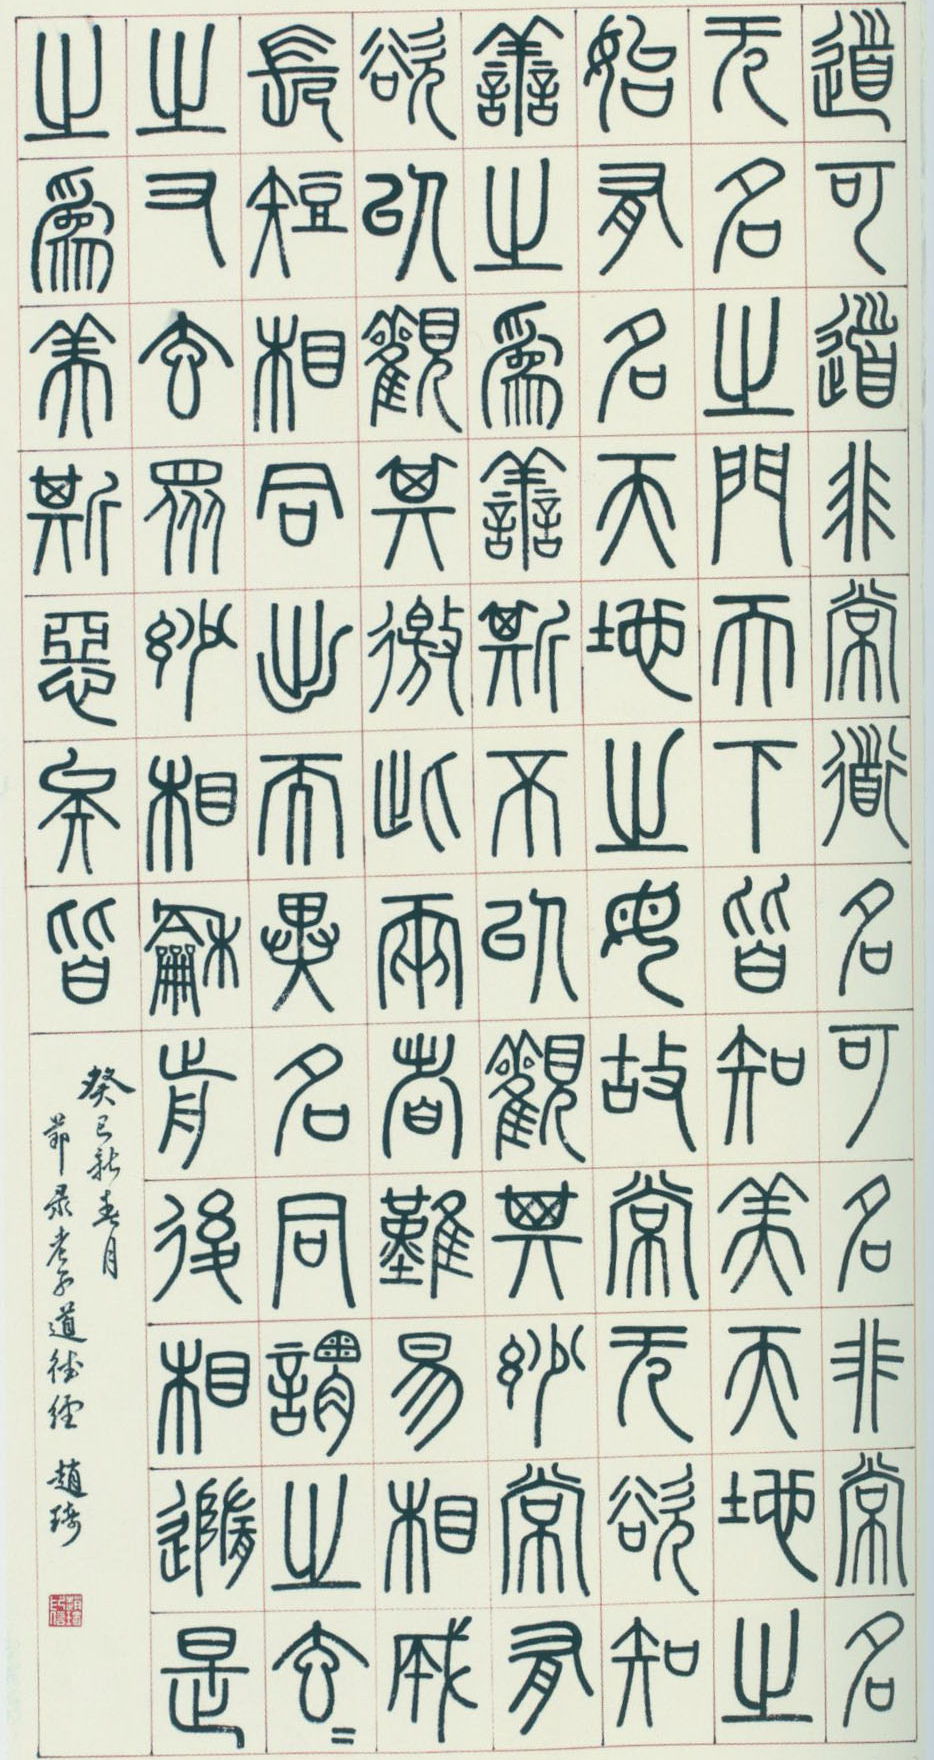 道可道非常道名可名非常名
无名之門而下皆知美天地之
始有名天地之母故常无欲知
善之為善斯不以觀其妙常有
欲以觀其徼此兩者難易相成
長短相同出而異名同謂之玄=
之又玄眾妙相龢前後相隨是
之為美斯惡矣皆
癸巳新春月
節录老子道德經 趙琦